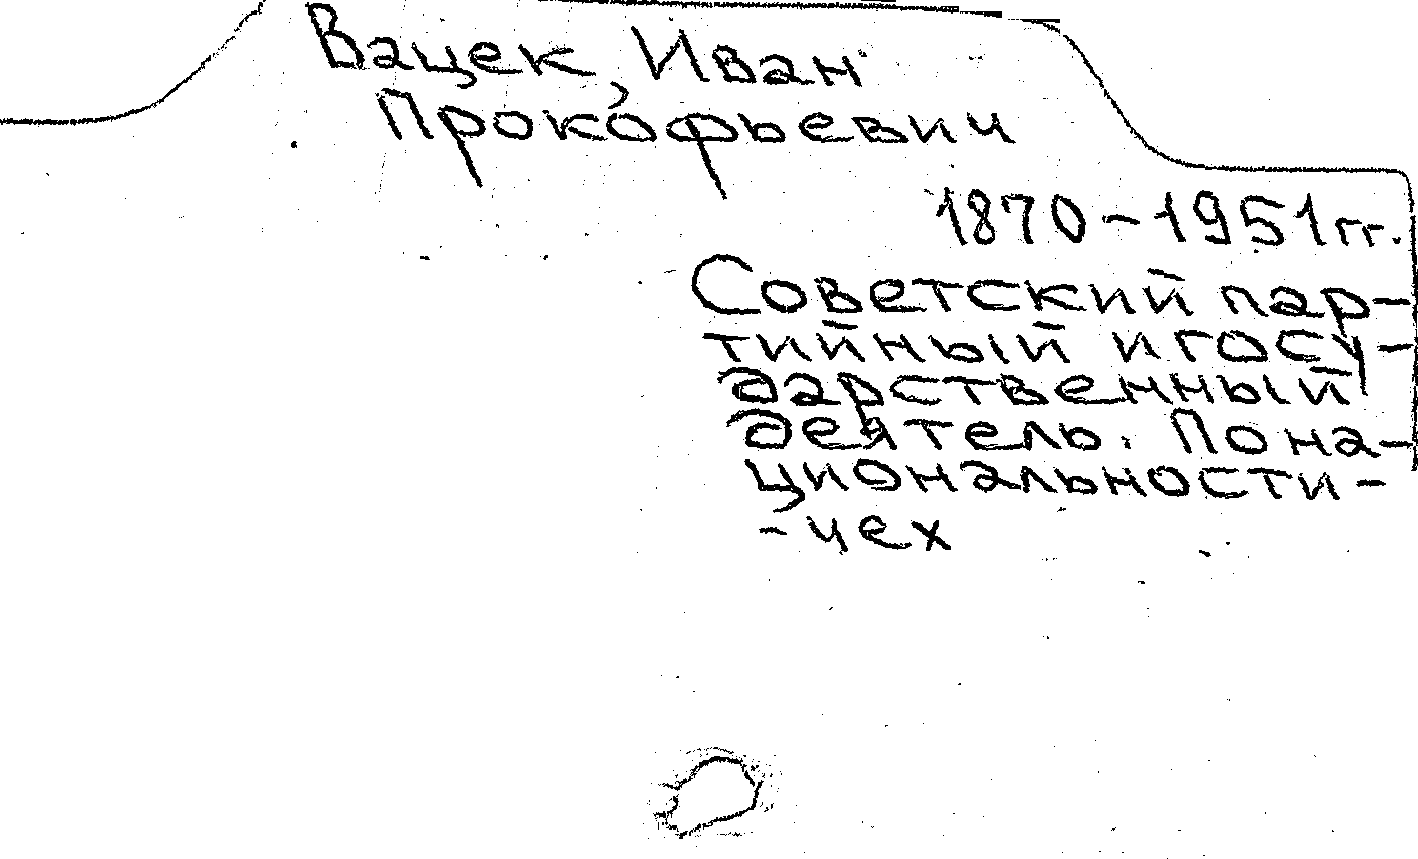 Вацек, Иван
Прокофьевич
1870-1951гг.
Советский пар-
тийный и госу-
дарственный
деятель. По на-
циональности -
- чех